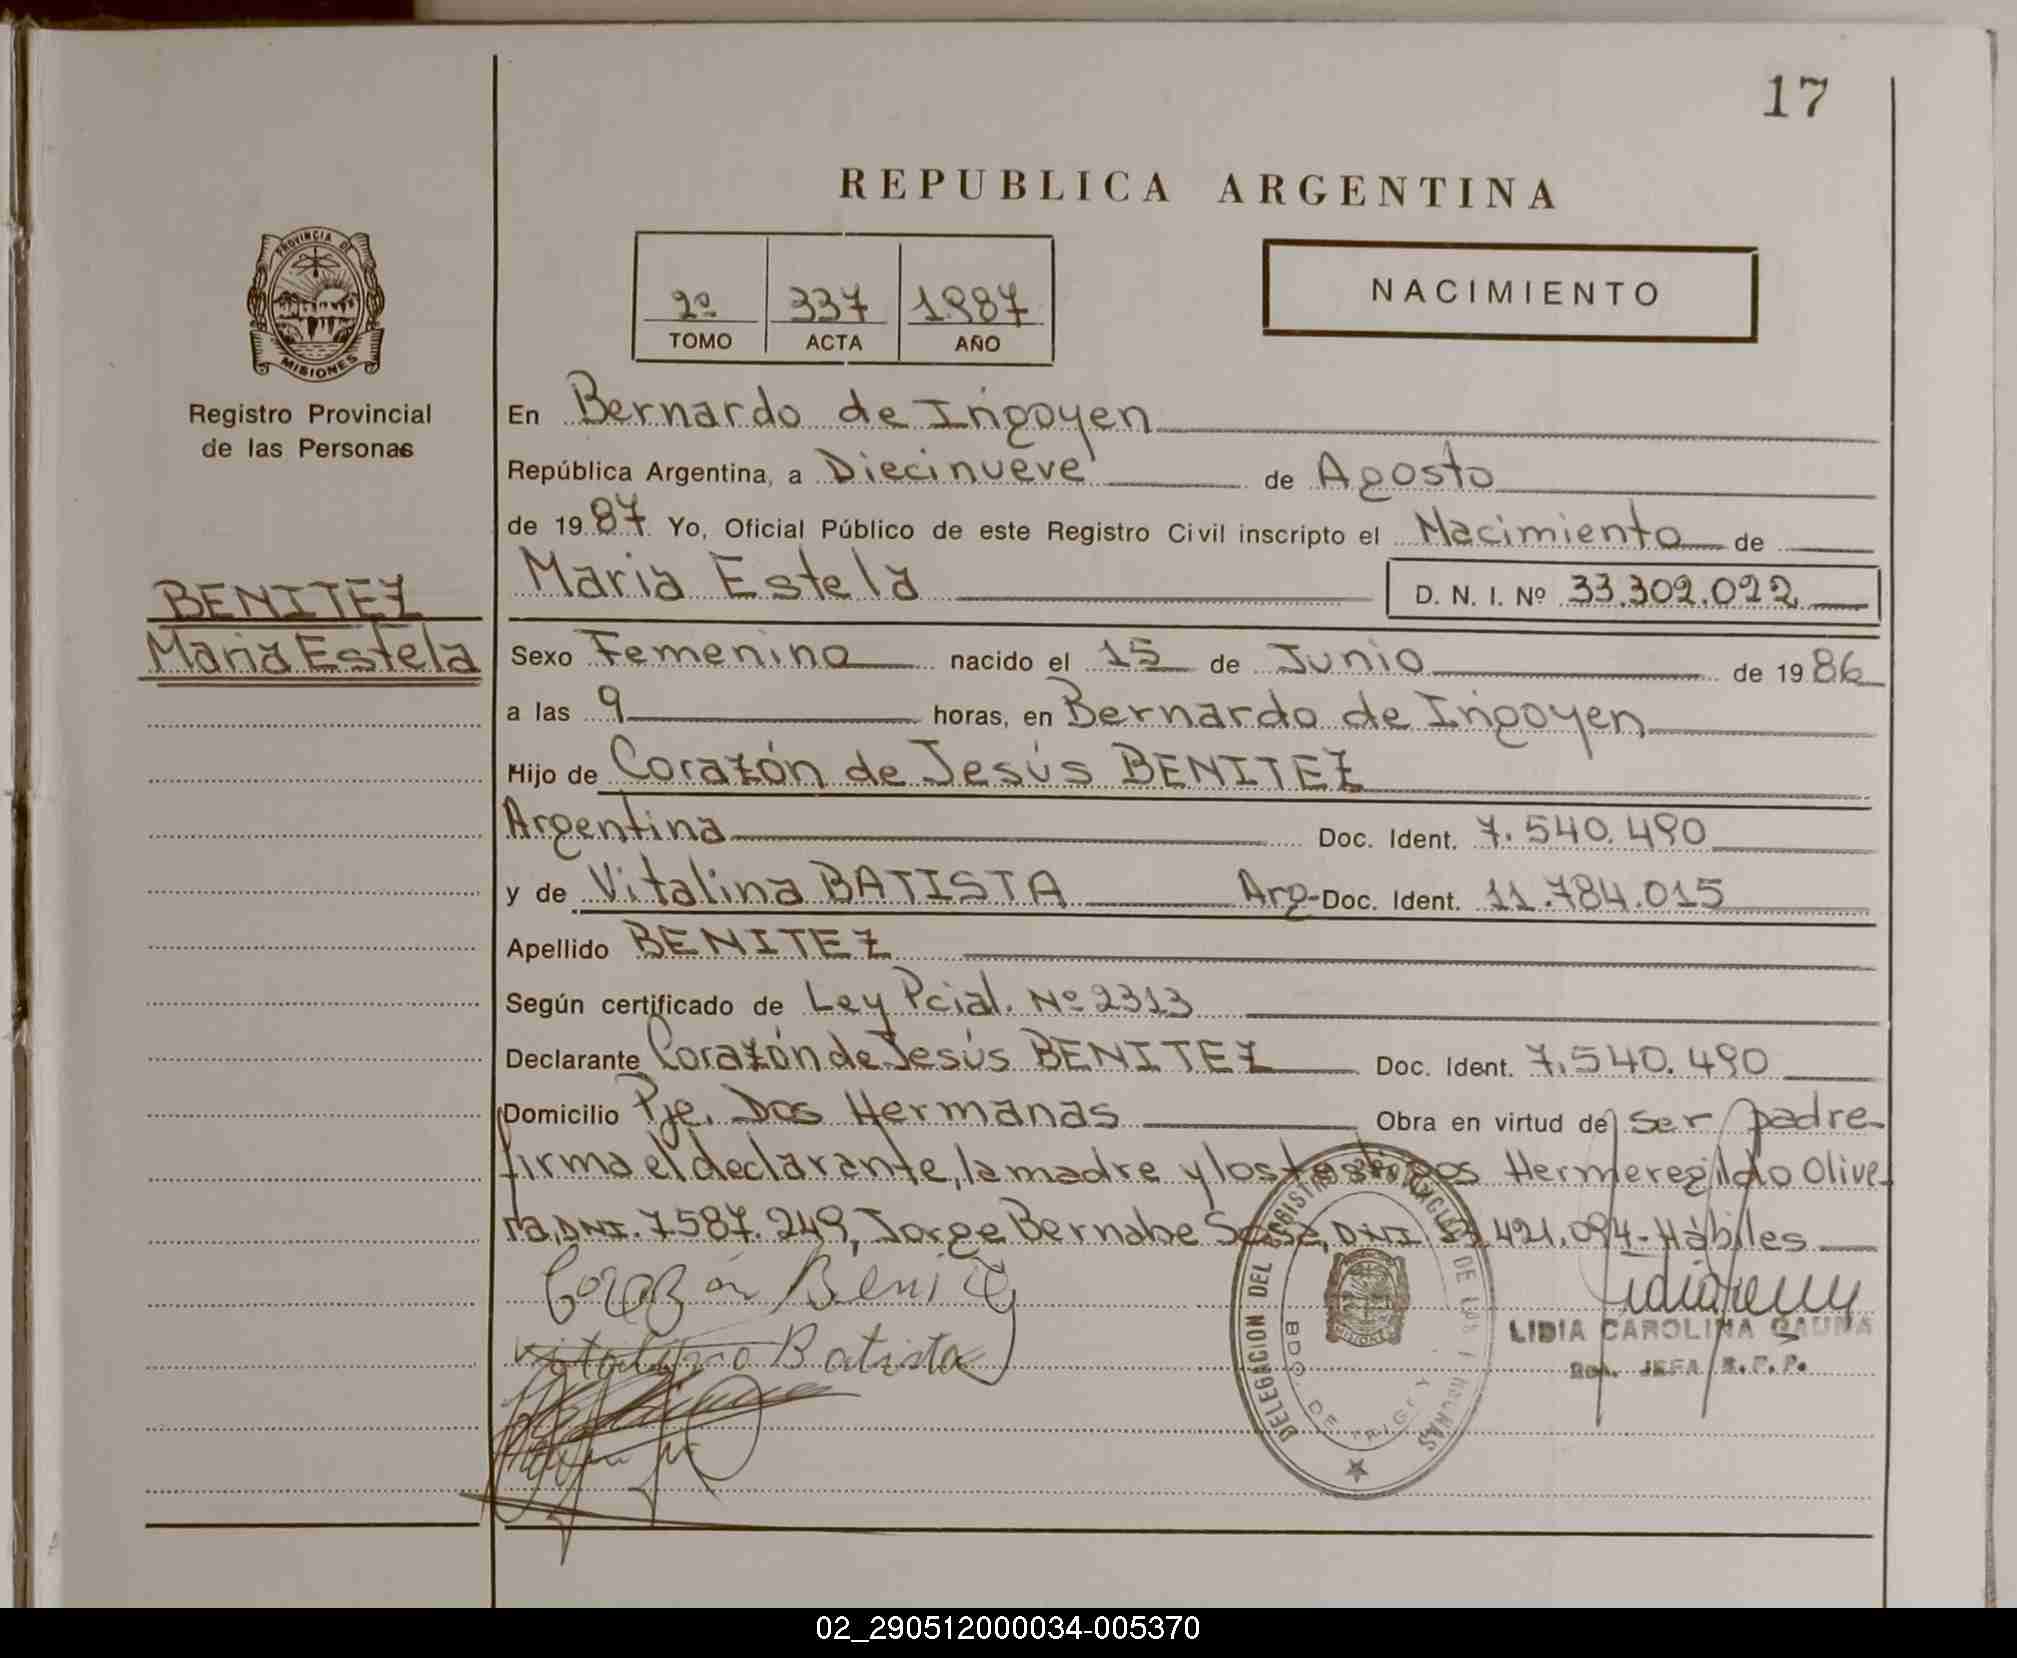 17
REPUBLICA ARGENTINA
PROVINCIA DE
MISIONES
Registro Provincial
de las Personas
2º 337 1987
TOMO ACTA AÑO
NACIMIENTO
En Bernardo de Irigoyen
República Argentina, a Diecinueve de Agosto
de 1987 Yo, Oficial Público de este Registro Civil inscripto el Nacimiento de
BENITEZ
Maria Estela
Maria Estela D. N. I. Nº 33.302.022
Sexo Femenino nacido el 15 de Junio de 1986
a las 9 horas, en Bernardo de Irigoyen
Hijo de Corazón de Jesús BENITEZ
Argentina Doc. Ident. 7.540.490
y de Vitalina BATISTA Arg- Doc. Ident. 11.784.015
Apellido BENITEZ
Según certificado de Ley Pcial. Nº 2313
Declarante Corazón de Jesús BENITEZ Doc. Ident. 7.540.490
Domicilio Pje. Dos Hermanas Obra en virtud de ser padre-
firma el declarante, la madre y los testigos Hermeregildo Olive-
ra, DNI. 7.587.249, Jorge Bernabe DNI 421.094- Hábiles
Corazón Benitez
Batista
DELEGACION DEL REGISTRO PROVINCIAL DE LAS PERSONAS
BDO. DE IRIGOYEN
LIDIA CAROLINA GAUNA
JEFA R.P.P.
02_290512000034-005370